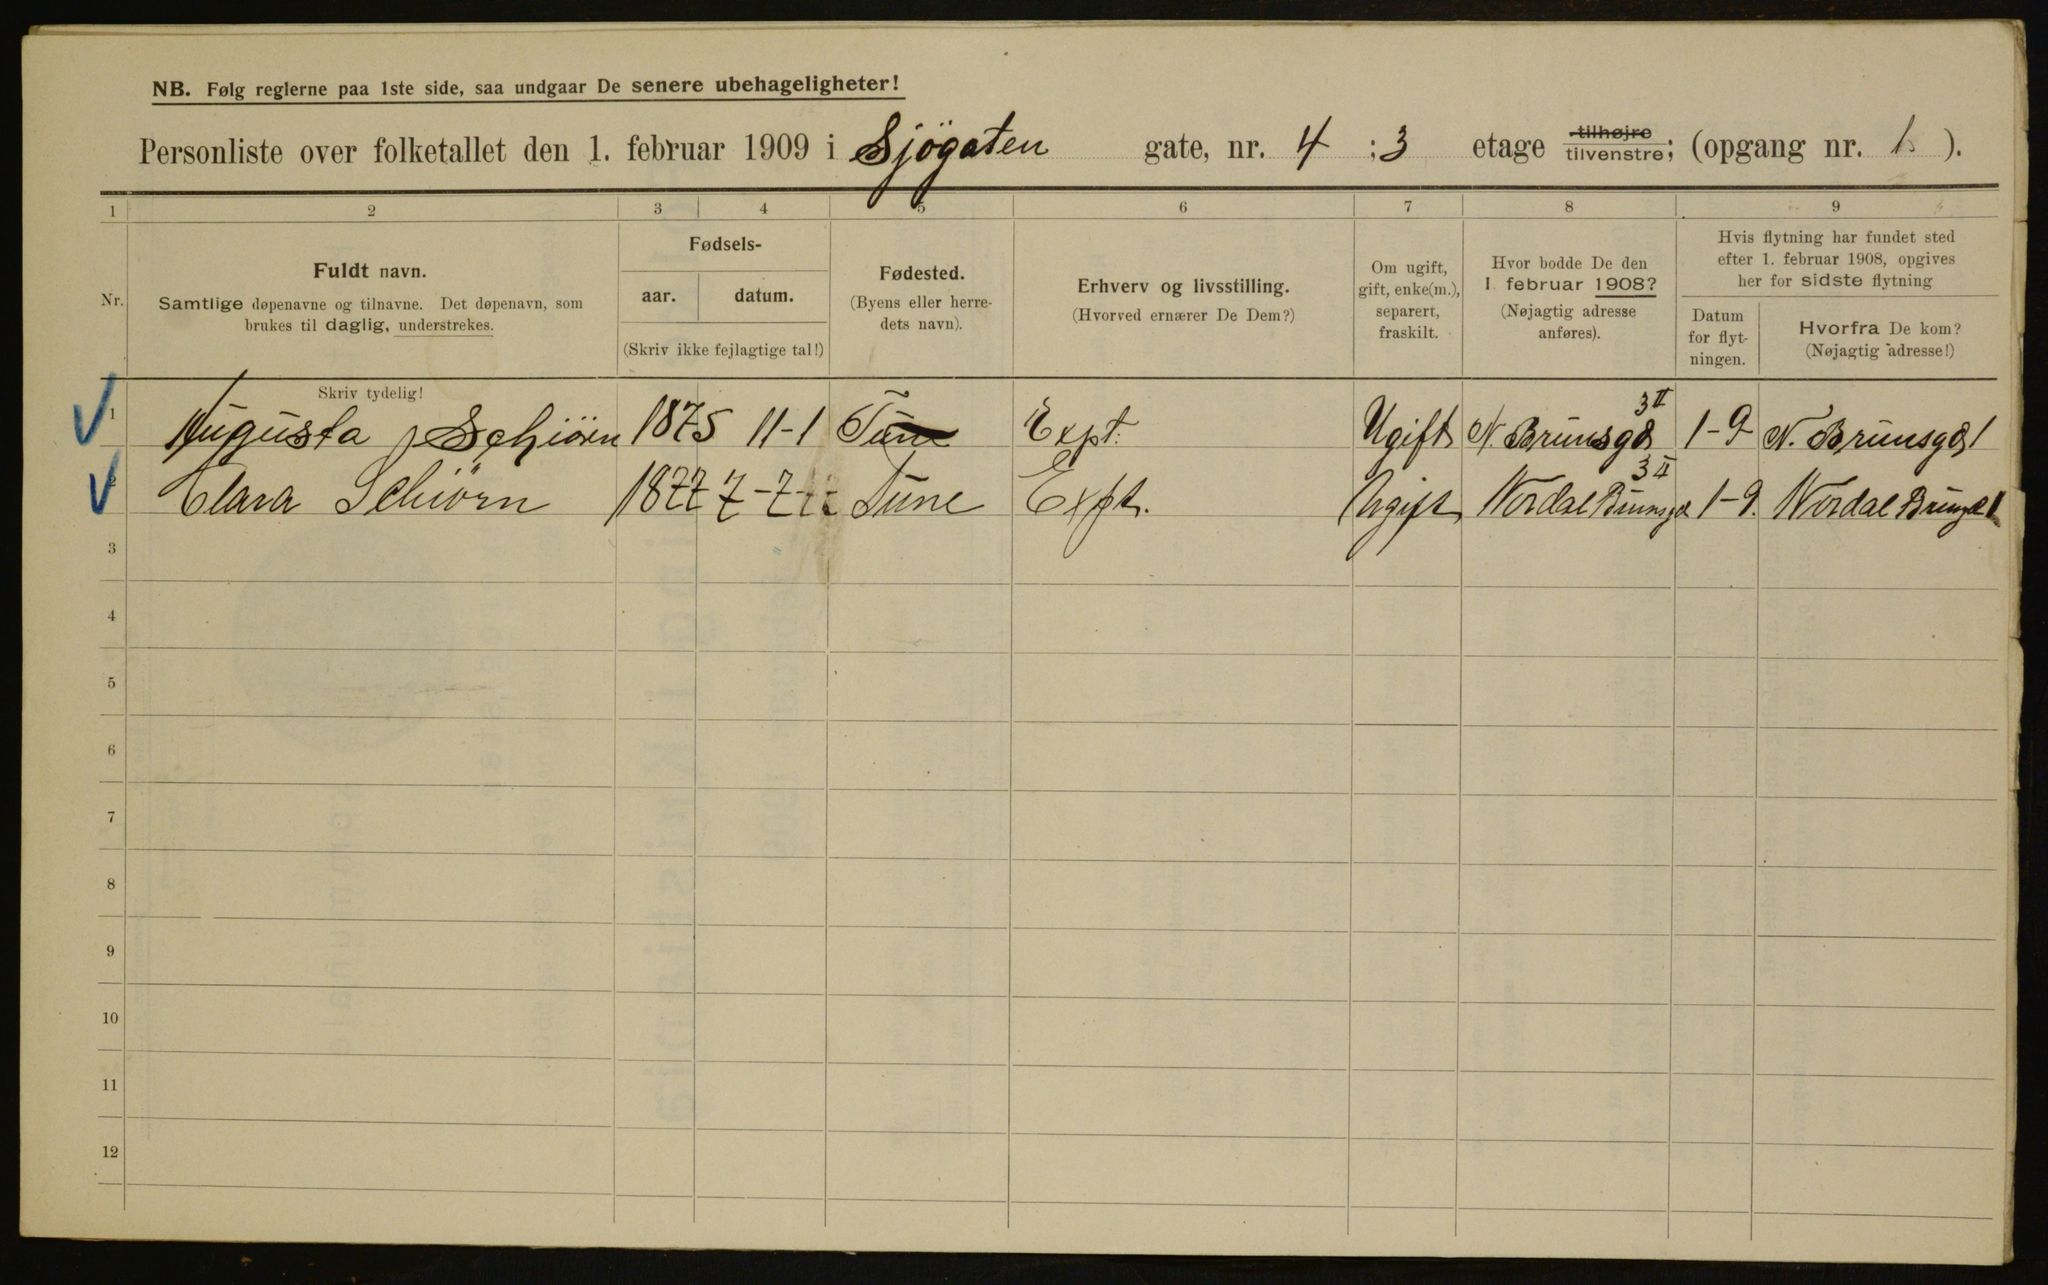 NB. Følg reglerne paa 1ste side, saa undgaar De senere ubehageligheter!
Personliste over folketallet den 1. februar 1909 i Sjögaten gate, nr. 4 ; 3 etage tilhøjre tilvenstre; (opgang nr. ).
1 2 3 4 5 6 7 8 9
Nr.
Fuldt navn.
Samtlige døpenavne og tilnavne. Det døpenavn, som
brukes til daglig, understrekes.
Fødsels-
aar. datum.
(Skriv ikke fejlagtige tal!)
Fødested.
(Byens eller herre-
dets navn).
Erhverv og livsstilling.
(Hvorved ernærer De Dem?)
Om ugift,
gift, enke(m.),
separert,
fraskilt.
Hvor bodde De den
1 februar 1908?
(Nøjagtig adresse
anføres).
Hvis flytning har fundet sted
efter 1. februar 1908, opgives
her for sidste flytning
Datum
for flyt-
ningen.
Hvorfra De kom?
(Nøjagtig adresse!)
Skriv tydelig!
1 Augusta Schiörn 1875 11-1 Tune Expt. Ugift N. Brunsgd 3 II 1-9 N. Brunsgd 1
2 Clara Schiörn 1877 7-7 Tune Expt. Ugift Nordal Brunsgd 3 II 1-9. Nordal Brunsgd 1
3
4
5
6
7
8
9
10
11
12